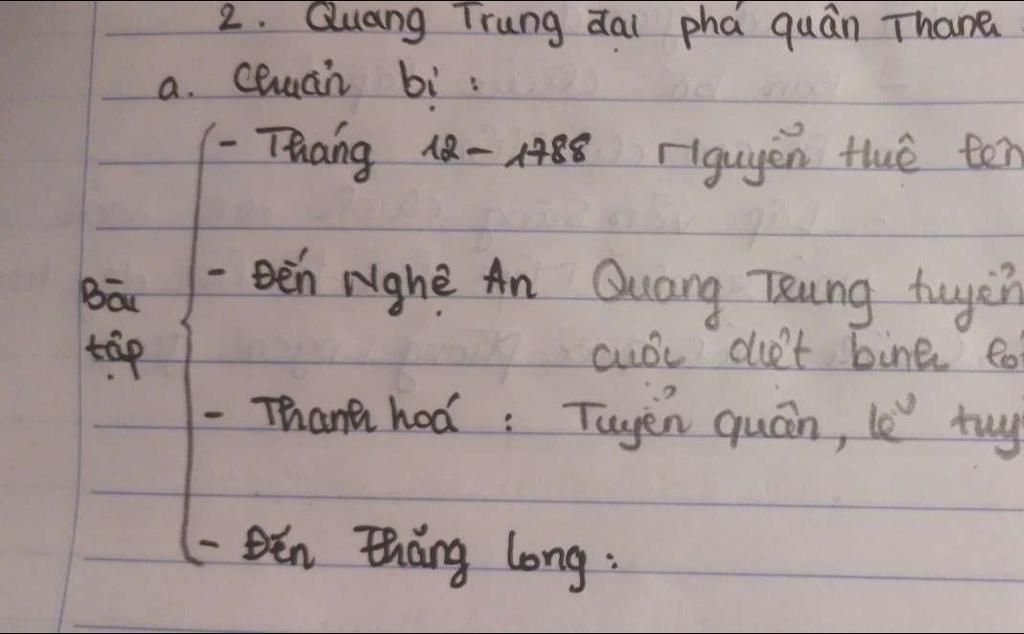 2. Quang Trung đại phá quân Thanh
a. Chuẩn bị :
- Tháng 12 - 1788 Nguyễn Huệ lên
- Đến Nghệ An Quang Trung tuyển
Bài tập
cuôc diệt binh
- Thanh hoá : Tuyển quân, lễ tuy
- Đến Thăng long :